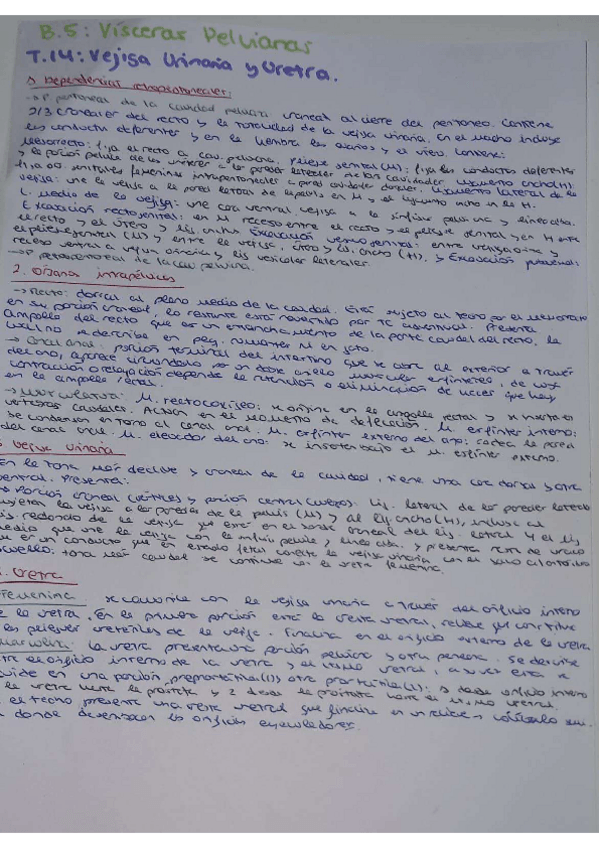 B.5: Vísceras Pelvianas
T.14: Vejiga Urinaria y Uretra.
1. Dependencias retroperitoneales:
→ P. peritoneal de la cavidad pelviana craneal al cierre del peritoneo. Contiene
2/3 craneales del recto y la totalidad de la vejiga urinaria. En el macho incluye
los conductos deferentes y en la hembra los ovarios y el útero. Contiene:
Mesorrecto: fija el recto a cav. pelviana, pliegue genital (M): fija los conductos deferentes
y la porción pelvica de los uréteres a las paredes laterales de las cavidades, ligamento ancho (H):
fija gg. genitales femeninos intraperitoneales a pared cavidades dorsales. Ligamento lateral de la
vejiga: une la vejiga a la pared lateral de la pelvis en M y el ligamento ancho en la H.
L. medio de la vejiga: une cara ventral vejiga a la sínfisis pelviana y línea alba.
Excavación rectogenital: en M receso entre el recto y el pliegue genital y en H entre
el recto y el útero y lig. ancho. Excavación vesicogenital: entre vejiga orina y
el pliegue genital (M) y entre la vejiga, útero y lig. ancho (H), y Excavación pubovesical:
receso ventral a vejiga urinaria y lig. vesicales laterales.
→ P. retroperitoneal de la cav. pelviana.
2. Órganos intrapélvicos
→ Recto: dorsal al plano medio de la cavidad. Está sujeto al techo por el mesorrecto
en su porción craneal, lo restante está revestido por TC adventicial. Presenta
ampolla del recto que es un ensanchamiento de la parte caudal del recto, la
cual no se describe en peq. rumiantes ni en gato.
→ Canal anal: porción terminal del intestino que se abre al exterior a través
del ano, aparece circundado por un doble anillo muscular esfínteres, de cuya
contracción o relajación depende la retención o eliminación de heces que hay
en la ampolla rectal.
→ Musculatura: M. rectococcígeo: se origina en la ampolla rectal y se inserta en
vértebras caudales. Actúan en el momento de defecación. M. esfínter interno:
se condensan en torno al canal anal. M. esfínter externo del ano: rodea la pared
del canal anal. M. elevador del ano: se inserta bajo el M. esfínter externo.
Vejiga Urinaria
En la zona más declive y craneal de la cavidad, tiene una cara dorsal y otra
ventral. Presenta:
Porción craneal (vértice) y porción central (cuerpo). Lig. lateral de las paredes laterales
sujetan la vejiga a las paredes de la pelvis (M) y al lig. ancho (H), incluso al
lig. redondo de la vejiga que está en el borde craneal del lig. lateral y el lig.
medio que une la vejiga con la sínfisis pelvica y línea alba, y presenta resto de uraco
que es un conducto que en estado fetal conecta la vejiga urinaria con el saco alantoideo
cuello: zona más caudal se continúa con la uretra femenina.
Uretra
Femenina se comunica con la vejiga urinaria a través del orificio interno
de la uretra. En la primera porción está la cresta uretral, relieve que constituye
los pliegues uretrales de la vejiga. Finaliza en el orificio externo de la uretra
Masculina: la uretra presenta una porción pelvica y otra peneana. Se describe
entre el orificio interno de la uretra y el istmo uretral, a su vez esta se
divide en una porción preprostática (1) y otra prostática (2). 1 desde orificio interno
de la uretra hasta la próstata y 2 desde la próstata hasta el istmo uretral.
el techo presenta una cresta uretral que finaliza en un relieve, colículo sem.
donde desembocan los orificios eyaculadores.